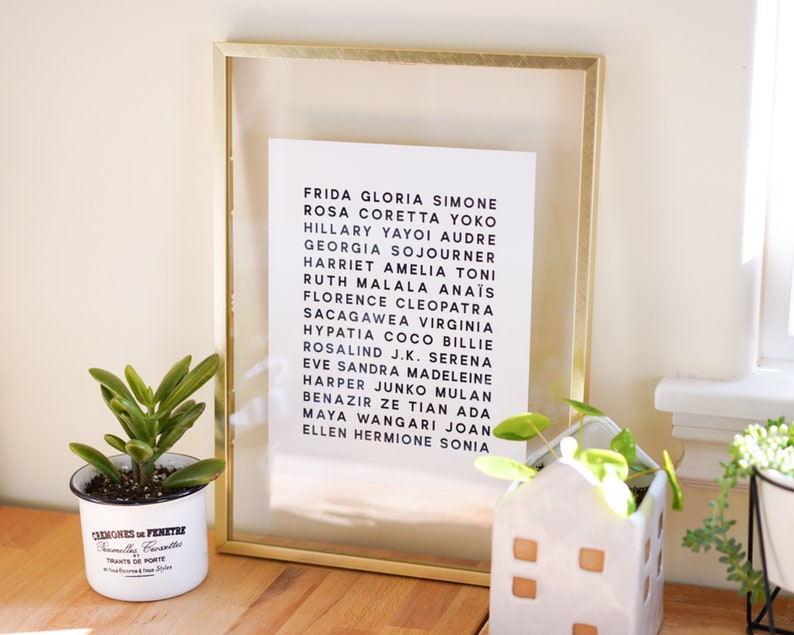 FRIDA GLORIA SIMONE
ROSA CORETTA YOKO
HILLARY YAYOI AUDRE
GEORGIA SOJOURNER
HARRIET AMELIA TONI
RUTH MALALA ANAÏS
FLORENCE CLEOPATRA
SACAGAWEA VIRGINIA
HYPATIA COCO BILLIE
ROSALIND J.K. SERENA
EVE SANDRA MADELEINE
HARPER JUNKO MULAN
BENAZIR ZE TIAN ADA
MAYA WANGARI JOAN
ELLEN HERMIONE SONIA
CREMONES DE FENETRE
Paumelles, Crossettes
ET
TIRANTS DE PORTE
en tous Genres & tous Styles